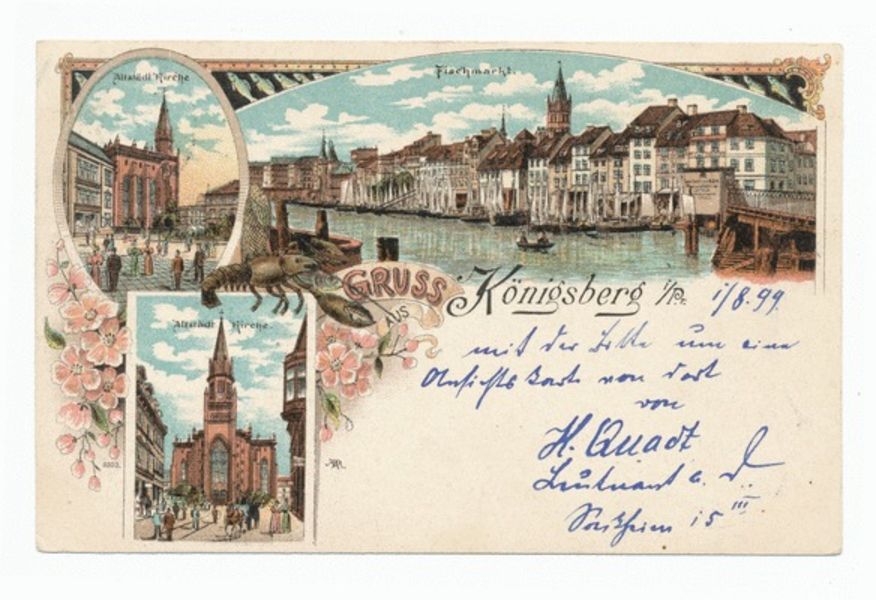 Altstädt Kirche
Fischmarkt.
GRUSS
AUS
Königsberg i/Pr.
1/8.99.
mit der Bitte um eine
Ansichtskarte von dort
von
H. Quadt
Leutnant a. D.
Sackheim 15 III
Altstädt Kirche.